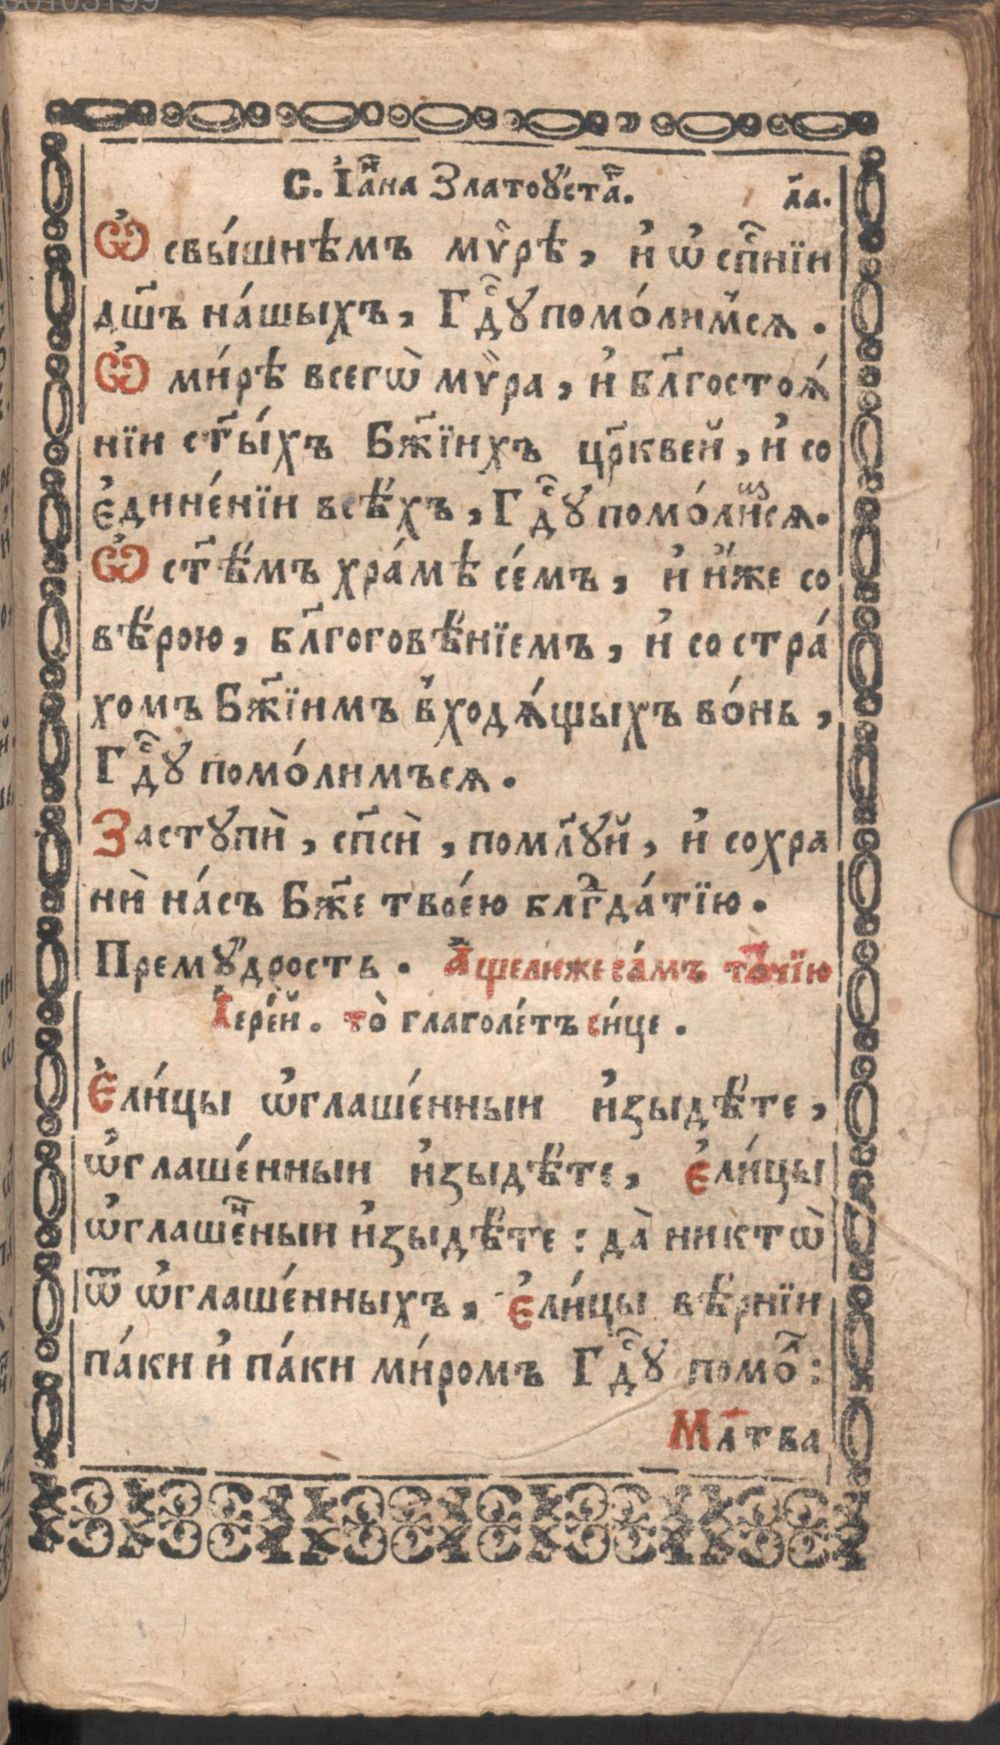 00103199
С. І҆ѡ҃на Златоꙋста҃. л҃а.
Ѡ҆ свы́шнѣмъ мѵ̑рѣ, и҆ ѡ҆ сп҃нїи
дш҃ъ на́шыхъ, Гдⷭ҇ꙋ помо́лим̾сѧ.
Ѡ҆ ми́рѣ всегѡ̀ мѵ̑ра, и҆ бл҃гостоѧ́
нїи ст҃ы́хъ Бж҃їихъ цр҃квей, и҆ со
є҆дине́нїи всѣ́хъ, Гдⷭ҇ꙋ помо́лиⷨсѧ.
Ѡ҆ ст҃ѣ́мъ хра́мѣ се́мъ, и҆ и҆́же со
вѣ́рою, бл҃гоговѣ́нїемъ, и҆ со стра́
хомъ Бж҃їимъ в̾ходѧ́щыхъ во́нь,
Гдⷭ҇ꙋ помо́лимъсѧ.
Застꙋпѝ, сп҃сѝ, помл҃ꙋй, и҆ сохра
нѝ на́съ Бж҃е твое́ю блг҃да́тїю.
Премꙋ́дрость. А҆́щелиже са́мъ то́чїю
І҆ере́й. то̀ глаголе́тъ си́це.
Є҆ли́цы ѡ҆глаше́нныи и҆зыдѣ́те,
ѡ҆глаше́нныи и҆зыдѣ́те, є҆ли́цы
ѡ҆глашеⷩ҇ныи и҆зыдѣ́те: да̀ никтѡ̀
ѿ ѡ҆глаше́нныхъ, є҆ли́цы вѣ́рнїи
па́ки и҆ па́ки ми́ромъ Гдⷭ҇ꙋ помо̑:
Мл҃тва